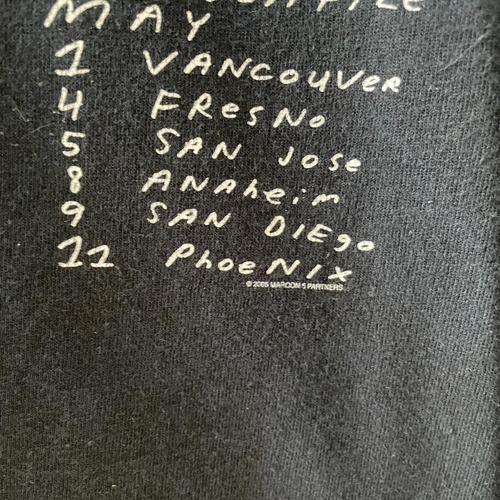 MAY
1 VANCOUVER
4 FResNo
5 SAN JOSe
8 ANAheim
9 SAN DIEgo
11 PhoeNIX
© 2005 MAROON 5 PARTNERS